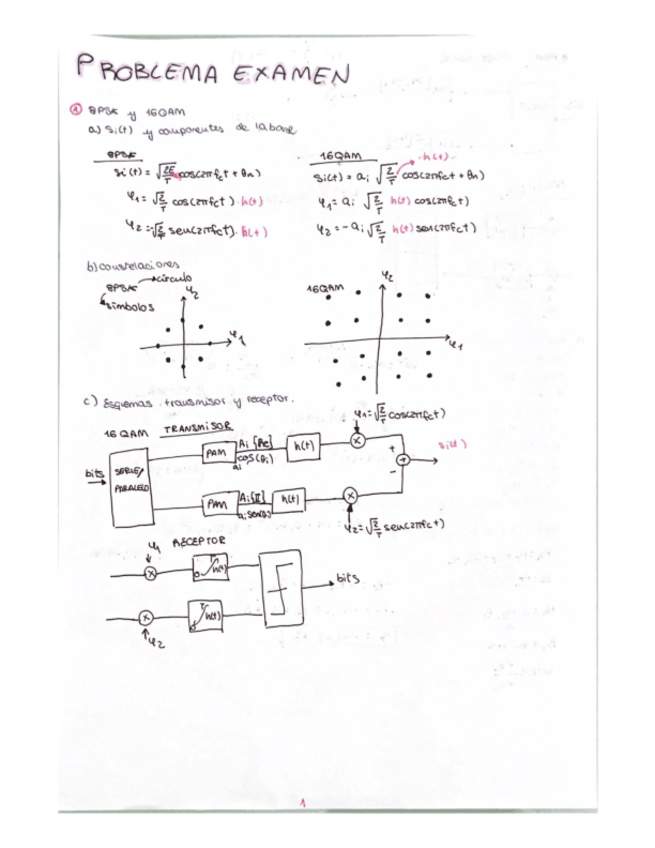 PROBLEMA EXAMEN
① 8PSK y 16QAM
a) si(t) y componentes de la base
8PSK
si(t) = √(2E/T) cos(2πfct + θn)
φ1 = √(2/T) cos(2πfct) · h(t)
φ2 = -√(2/T) sen(2πfct) · h(t)
16QAM
· h(t)
si(t) = ai √(2/T) cos(2πfct + θn)
φ1 = ai √(2/T) h(t) cos(2πfct)
φ2 = -ai √(2/T) h(t) sen(2πfct)
b) constelaciones
8PSK → círculo
símbolos
φ2
φ1
16QAM
φ2
φ1
c) Esquemas transmisor y receptor.
16 QAM TRANSMISOR
φ1 = √(2/T) cos(2πfct)
bits
SERIE/
PARALELO
PAM
Ai [Re]
ai cos(θi)
h(t)
X
+
+
-
si(t)
PAM
Ai [I]
h(t)
X
φ2 = √(2/T) sen(2πfct)
φ1 RECEPTOR
X
T
∫ h(t)
0
bits
X
T
∫ h(t)
φ2
1